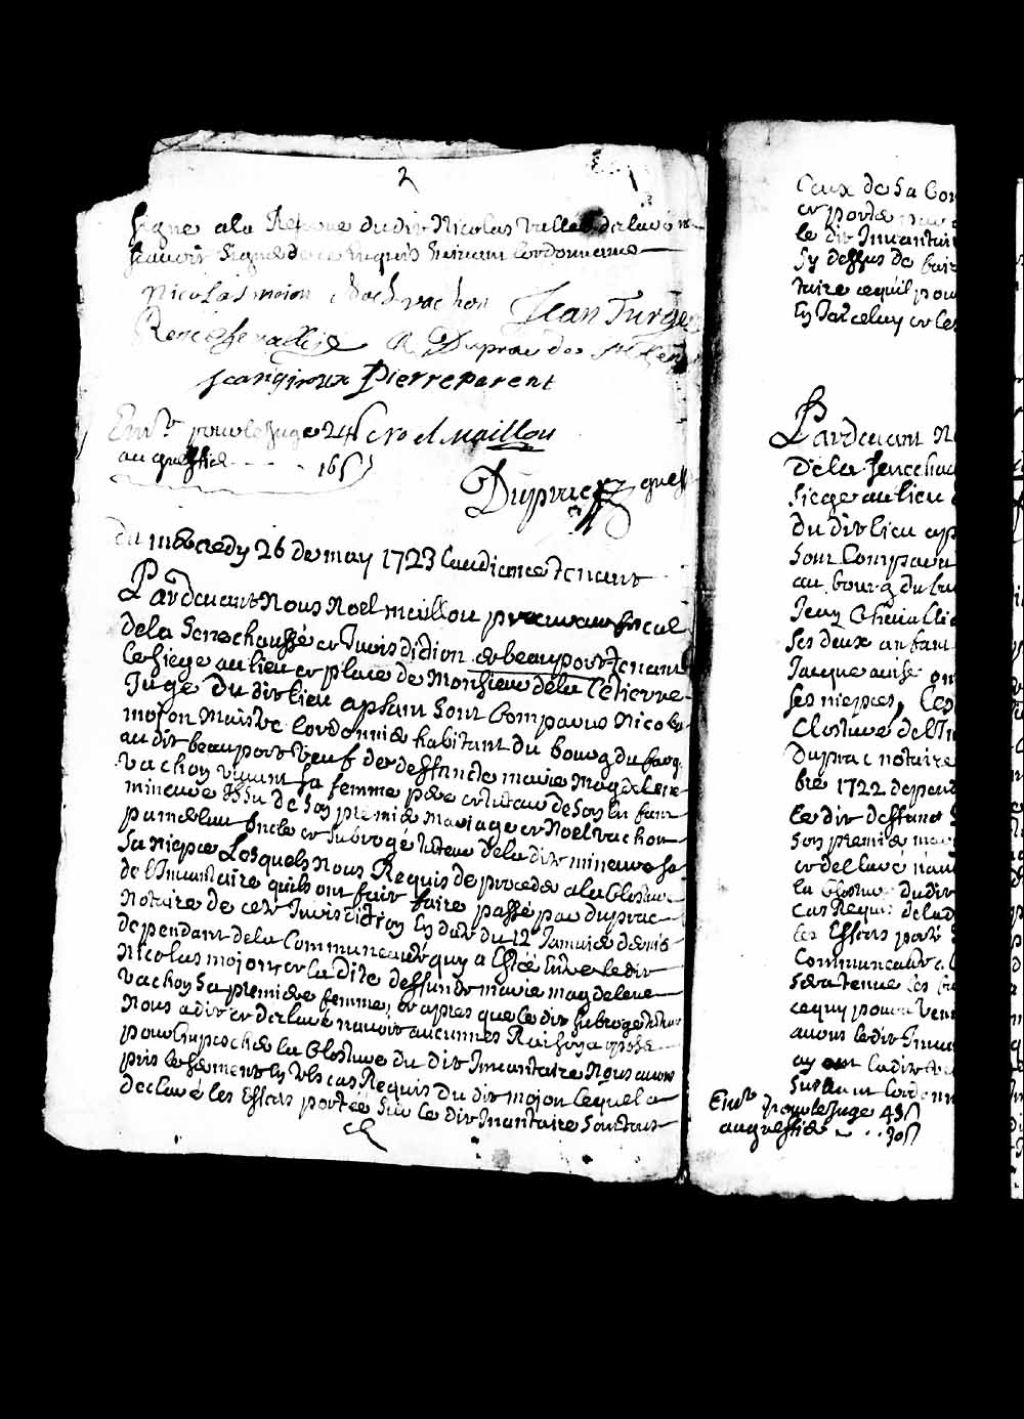 2
Signe a la Reserve du dit Nicolas Vallee declaré ne
scavoir signe de ce Enquis suivant Lordonnance
Nicolas maion vachon Jean Turge
Rene chevallie R Duprac des
Jean giroux Pierre parent
Emo.ts pour le Juge 24 s noel Maillou
au greffie - - - 16 s
Duprac greff
Du mecredy 26 de may 1723 Laudiance tenant
Pardevant Nous Noel maillou procureur fiscal
de la Senechaussé et Jurisdiction de beauport tenant
le siege au lieu et place de Monsieur de la Tetierre
Juge du dit lieu apsant Sont Comparus Nicolas
mojon Maistre Cordonnie habitant du bourg du fargi
au dit beauport veuf de deffancte marie Magdelene
vachon vivant sa femme pere et tuteur de son en fan
mineure Issu de son premie mariage et Noel vachon
pamerlau oncle et subrogé tuteur de la dite mineure sa
niepce Lesquels Nous Requis de procede a la Closture
de l'Inventaire quils ont fait faire passé par duprac
Notaire de cete Jurisdiction En date du 12 Janvie dernie
dependant de la Communeauté quy a Esté Entre le dit
Nicolas mojon, et la dite deffunte marie magdelene
vachon sa premiere femme, et apres que le dit subroge tuteur
Nous a dit et declaré navoir aucunnes Raisons a opose
pour Enpesche la Closture du dit Inventaire Nous avons
pris le serment En tels cas Requis du dit mojon lequel a
declaré les Effets portée sur le dit Inventaire Sontout
Ceux de sa Com
et portée
le dit Inventair
sy dessus de fair
taire cequil pou
En Parceluy et les
Pardevant No
De la senechau
siege au lieu
du dit lieu ap
sont Comparu
au bourg du fa
Jean Chevallie
ses deux anfant
Jacque avise
ses niepces, Les
Closture de l'In
Duprac notaire
bre 1722 depend
le dit deffunt
son premie ma
et declaré nav
la Closture du dit
cas Requis de la d
les Effets porté
Communeauté
sera tenue les
cequy poura ven
avons le dit Inven
ay la dite
suivant Lordonn
Emo.ts pour le Juge 45 s
au greffie - . . 30 s